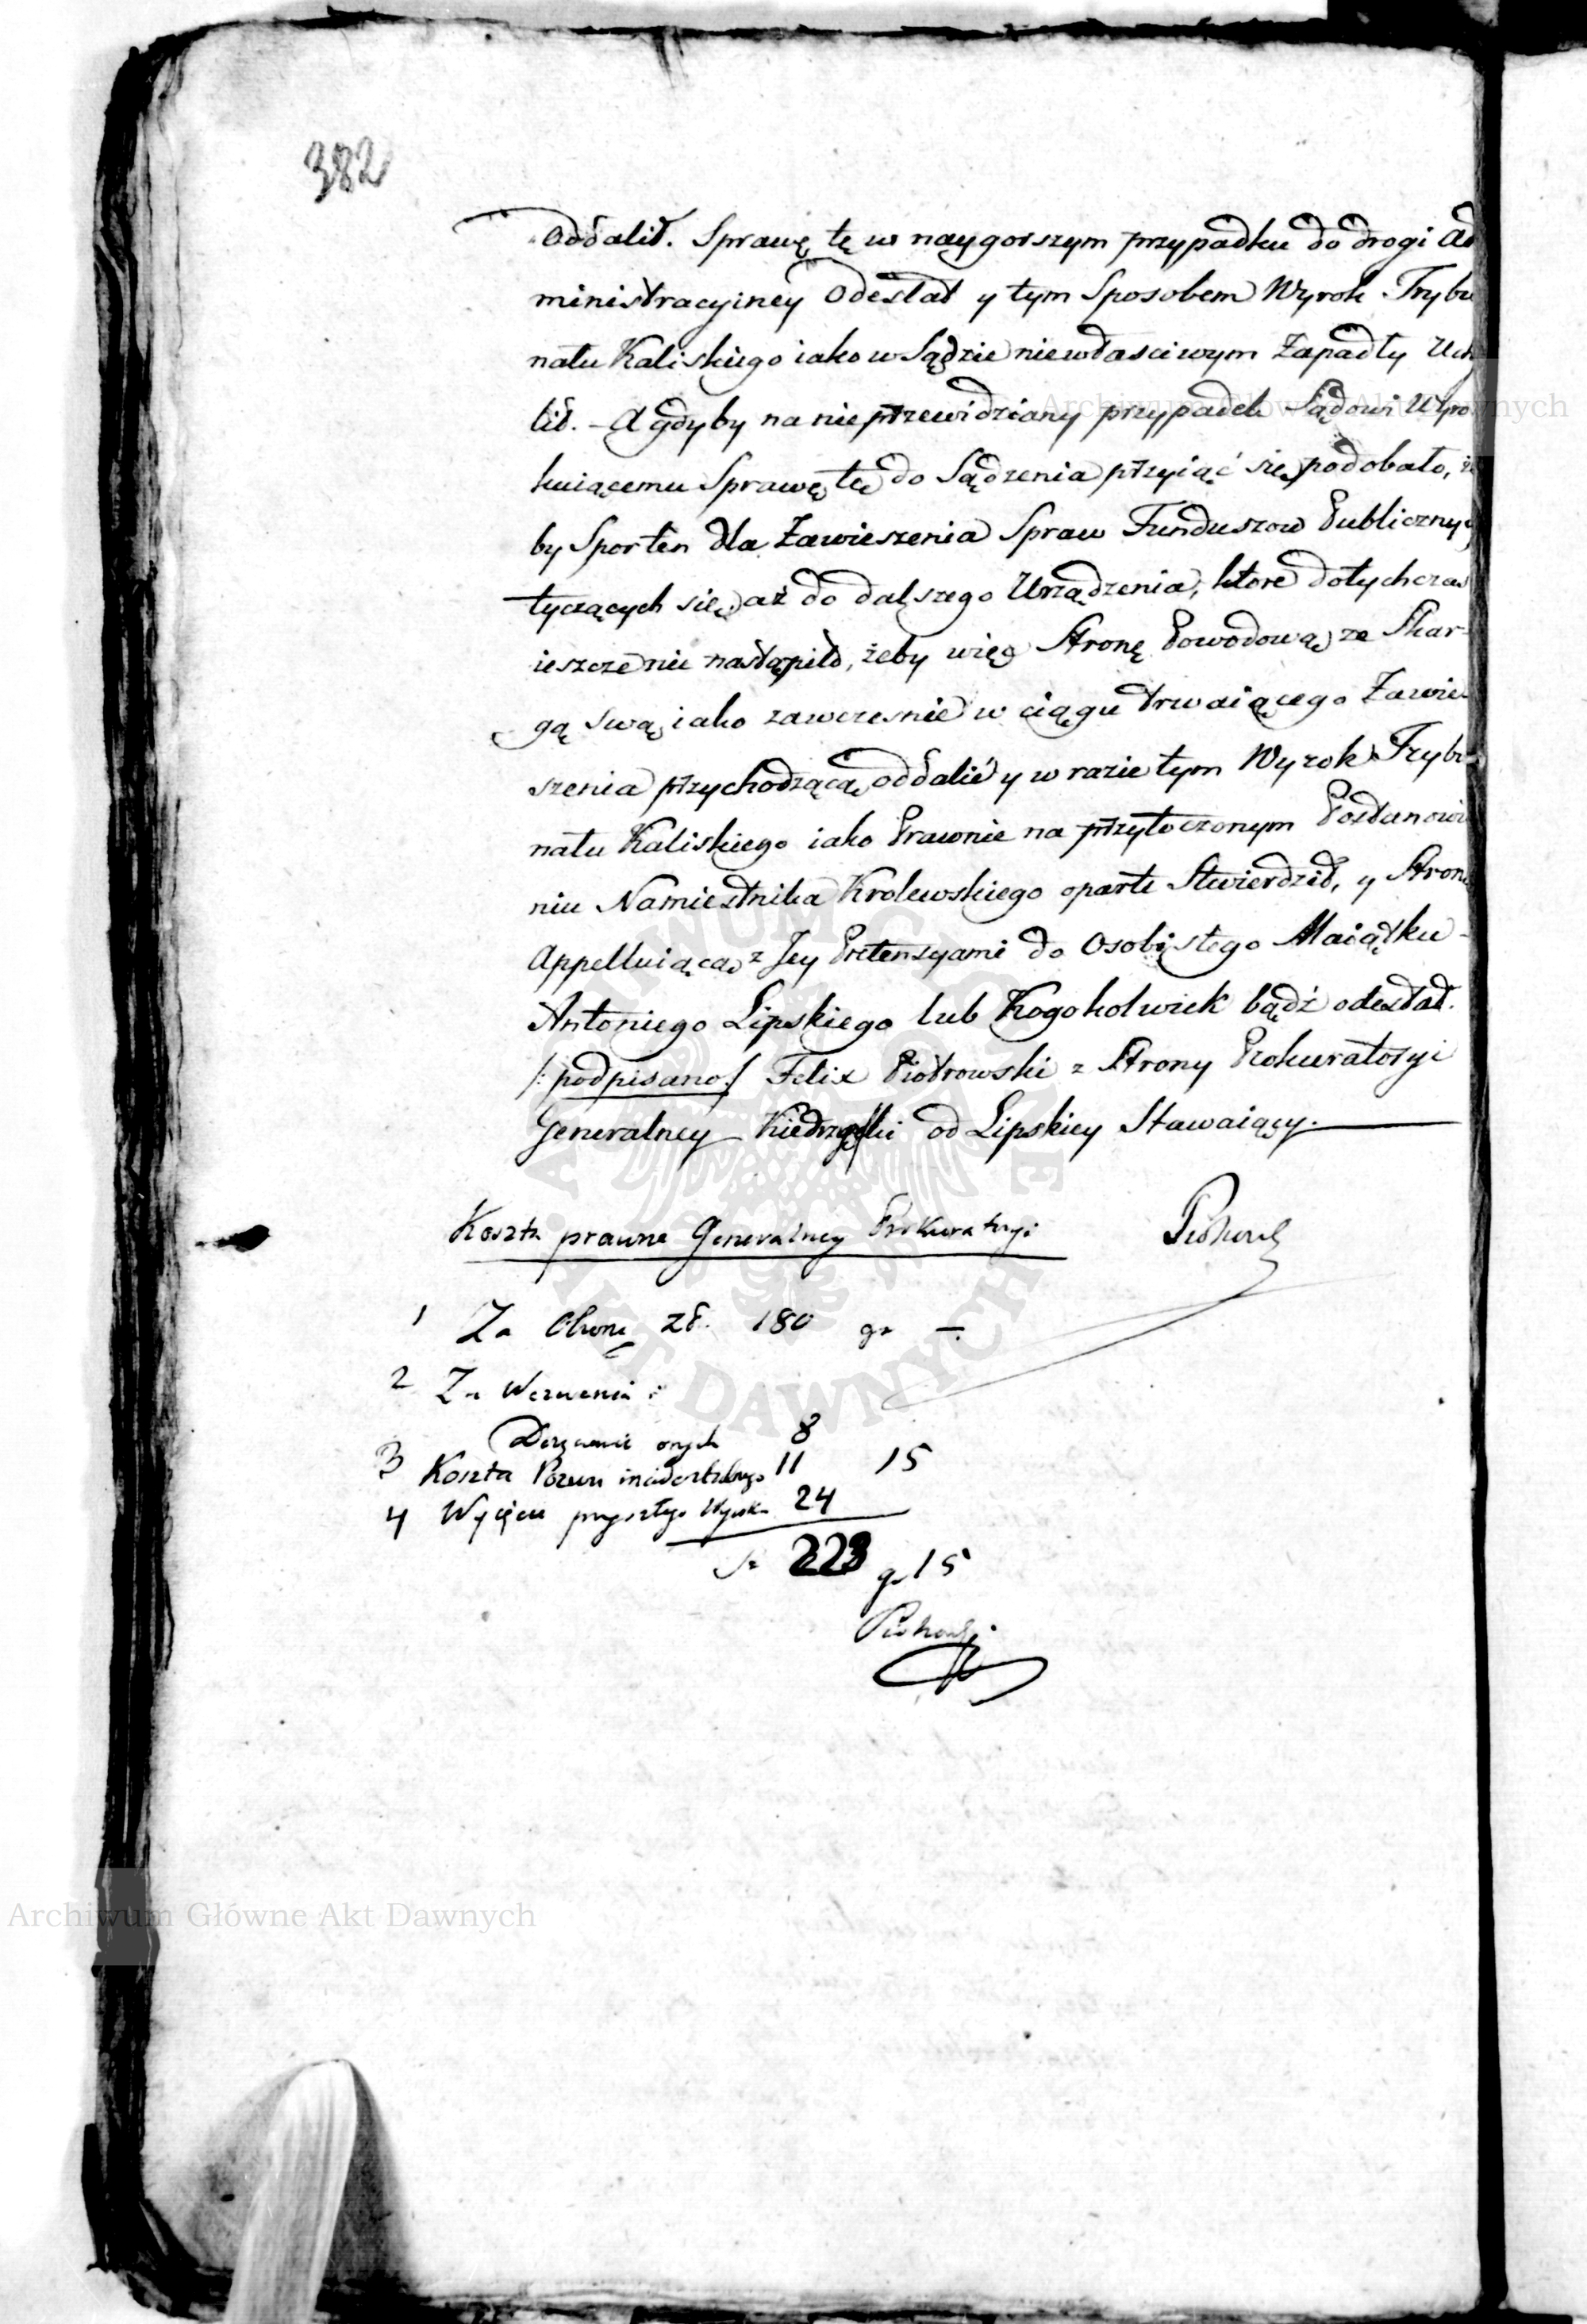 382
oddalił. Sprawę tę w naygorszym przypadku do drogi Ad
ministracyiney Odesłał y tym Sposobem Wyrok Trybu
nału Kaliskiego iako w Sądzie niewłasciwym Zapadły Uchy
lił. – A gdyby na nieprzewidziany przypadek Sądowi Wyro
kuiącemu Sprawę tę do Sądzenia przyiąć się podobało, że
by Spor ten dla Zawieszenia Spraw Funduszow Publicznych
tyczących się, aż do dalszego Urządzenia, ktore dotychczas
ieszcze nie nastąpiło, żeby więc Stronę Powodową ze Skar-
gą swą iako zawczesnie w ciągu trwaiącego Zawie-
szenia przychodzącą oddalić y w razie tym Wyrok Trybu-
nału Kaliskiego iako Prawnie na przytoczonym Postanowie
niu Namiestnika Krolewskiego oparte Stwierdził, y Stronę
Appelluiącą z Jey Pretensyami do Osobistego Maiątku -
Antoniego Lipskiego lub Kogokolwiek bądź odesłał.
/: podpisano / Felix Piotrowski z Strony Prokuratoryi
Generalney – od Lipskiey Stawaiący. —
Koszta prawne Generalney Prokuratoryi
1 Za Obronę zł. 180 gr –.
2 Za Wezwania :
Doręczenie onych 8
3 Koszta Pozwu incidentalnego 11 15
4 Wyjęcie przyszłego Wyroku 24
223 gr 15
Archiwum Główne Akt Dawnych
Archiwum Główne Akt Dawnych
ARCHIWUM GŁÓWNE AKT DAWNYCH